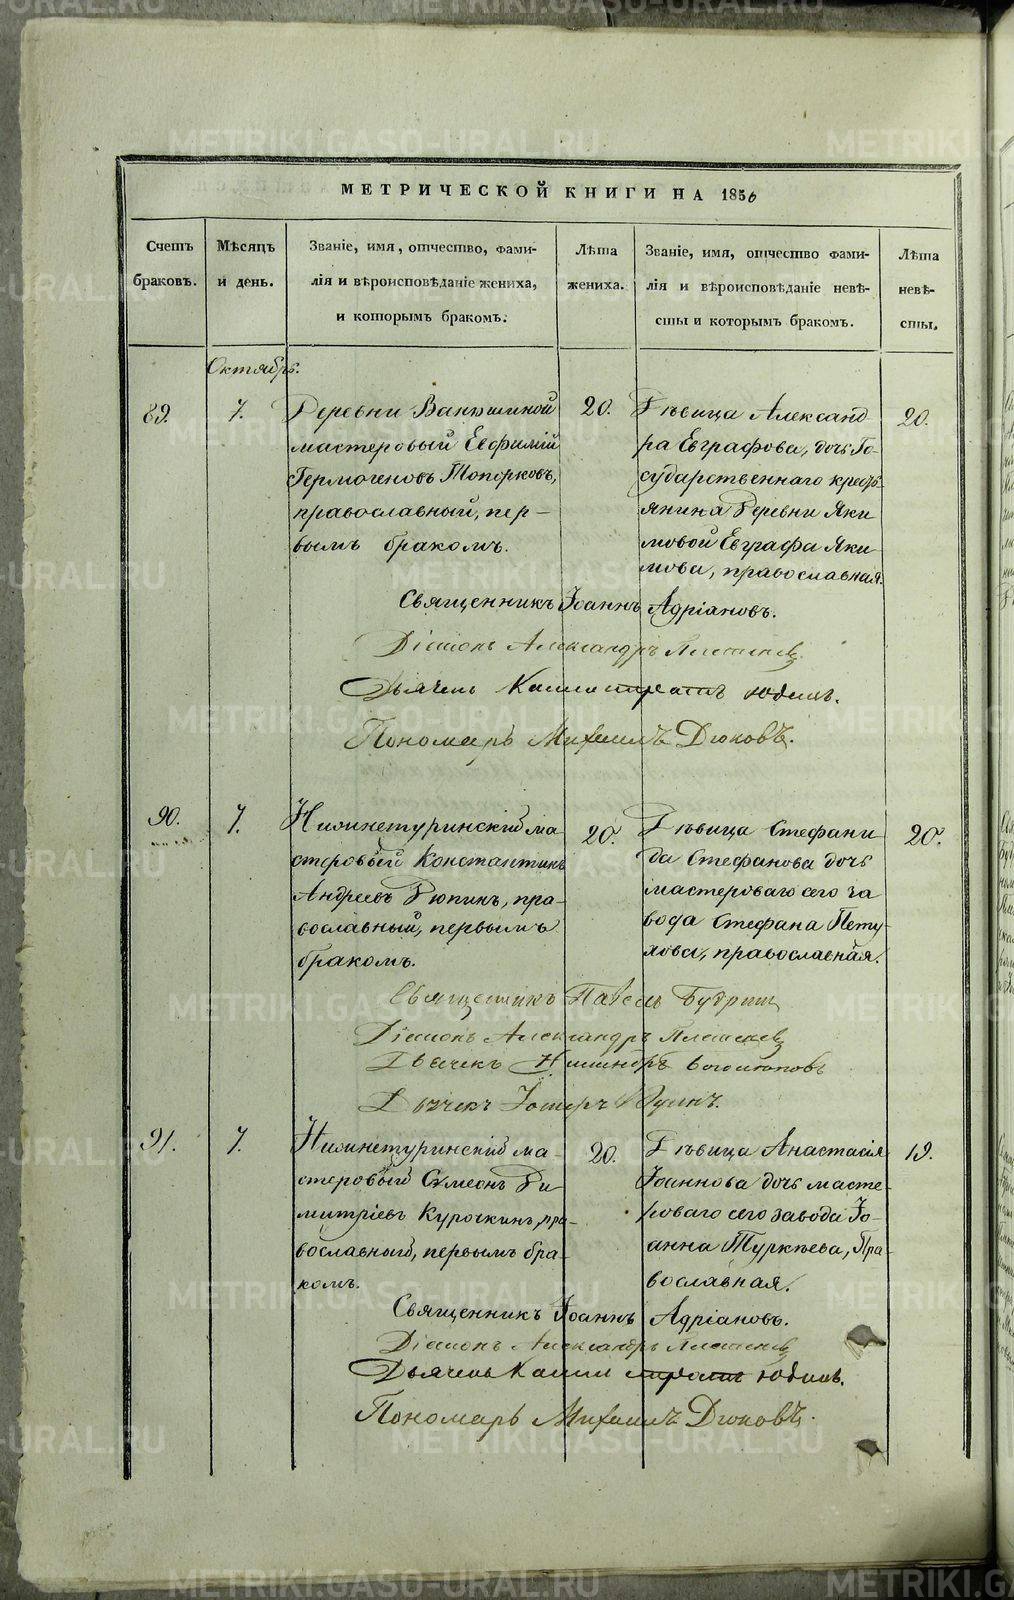 МЕТРИЧЕСКОЙ КНИГИ НА 1856
Счетъ браковъ.
Мѣсяцъ и день.
Званіе, имя, отчество, фами-
лія и вѣроисповѣданіе жениха,
и которымъ бракомъ.
Лѣта жениха.
Званіе, имя, отчество фами-
лія и вѣроисповѣданіе невѣ-
сты и которымъ бракомъ.
Лѣта невѣ-
сты.
Октябрь.
89.
7.
Деревни Ванюшиной
мастеровый Евфимій
Гермогеновъ Топорковъ,
православный, пер-
вымъ бракомъ.
20.
Дѣвица Александ
ра Евграфова, дочь Го-
сударственнаго кресть
янина Деревни Яки
мовой Евграфа Яки
мова, православная.
20.
Священникъ Іоаннъ Адріановъ.
Діаконъ Александръ
Дьячекъ Каллистратъ Юдинъ.
Пономарь Михаилъ Дюковъ.
90.
7.
Нижнетуринскій ма
стеровый Константинъ
Андреевъ Рюпинъ, пра-
вославный, первымъ
бракомъ.
20.
Дѣвица Стефани
да Стефанова дочь
мастероваго сего за
вода Стефана Пету
хова, православная.
20.
Священникъ Павелъ
Діаконъ Александръ
Дьячекъ
Дьячекъ
91.
7.
Нижнетуринскій ма-
стеровый Сѵмеонъ Ди
митріевъ Курочкинъ, пра-
вославный, первымъ бра-
комъ.
20.
Дѣвица Анастасія
Іоаннова дочь масте-
роваго сего завода Іо-
анна Туркѣева, Пра-
вославная.
19.
Священникъ Іоаннъ Адріановъ.
Діаконъ Александръ
Дьячекъ Каллистратъ Юдинъ.
Пономарь Михаилъ Дюковъ.
METRIKI.GASO-URAL.RU